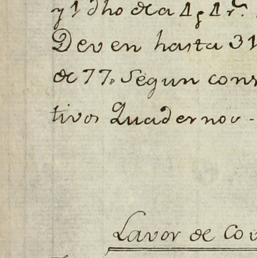 y 1 dho dca
Deven hasta 31
de 77. Segun cons
tivos Quadernos -
Lavor de Co